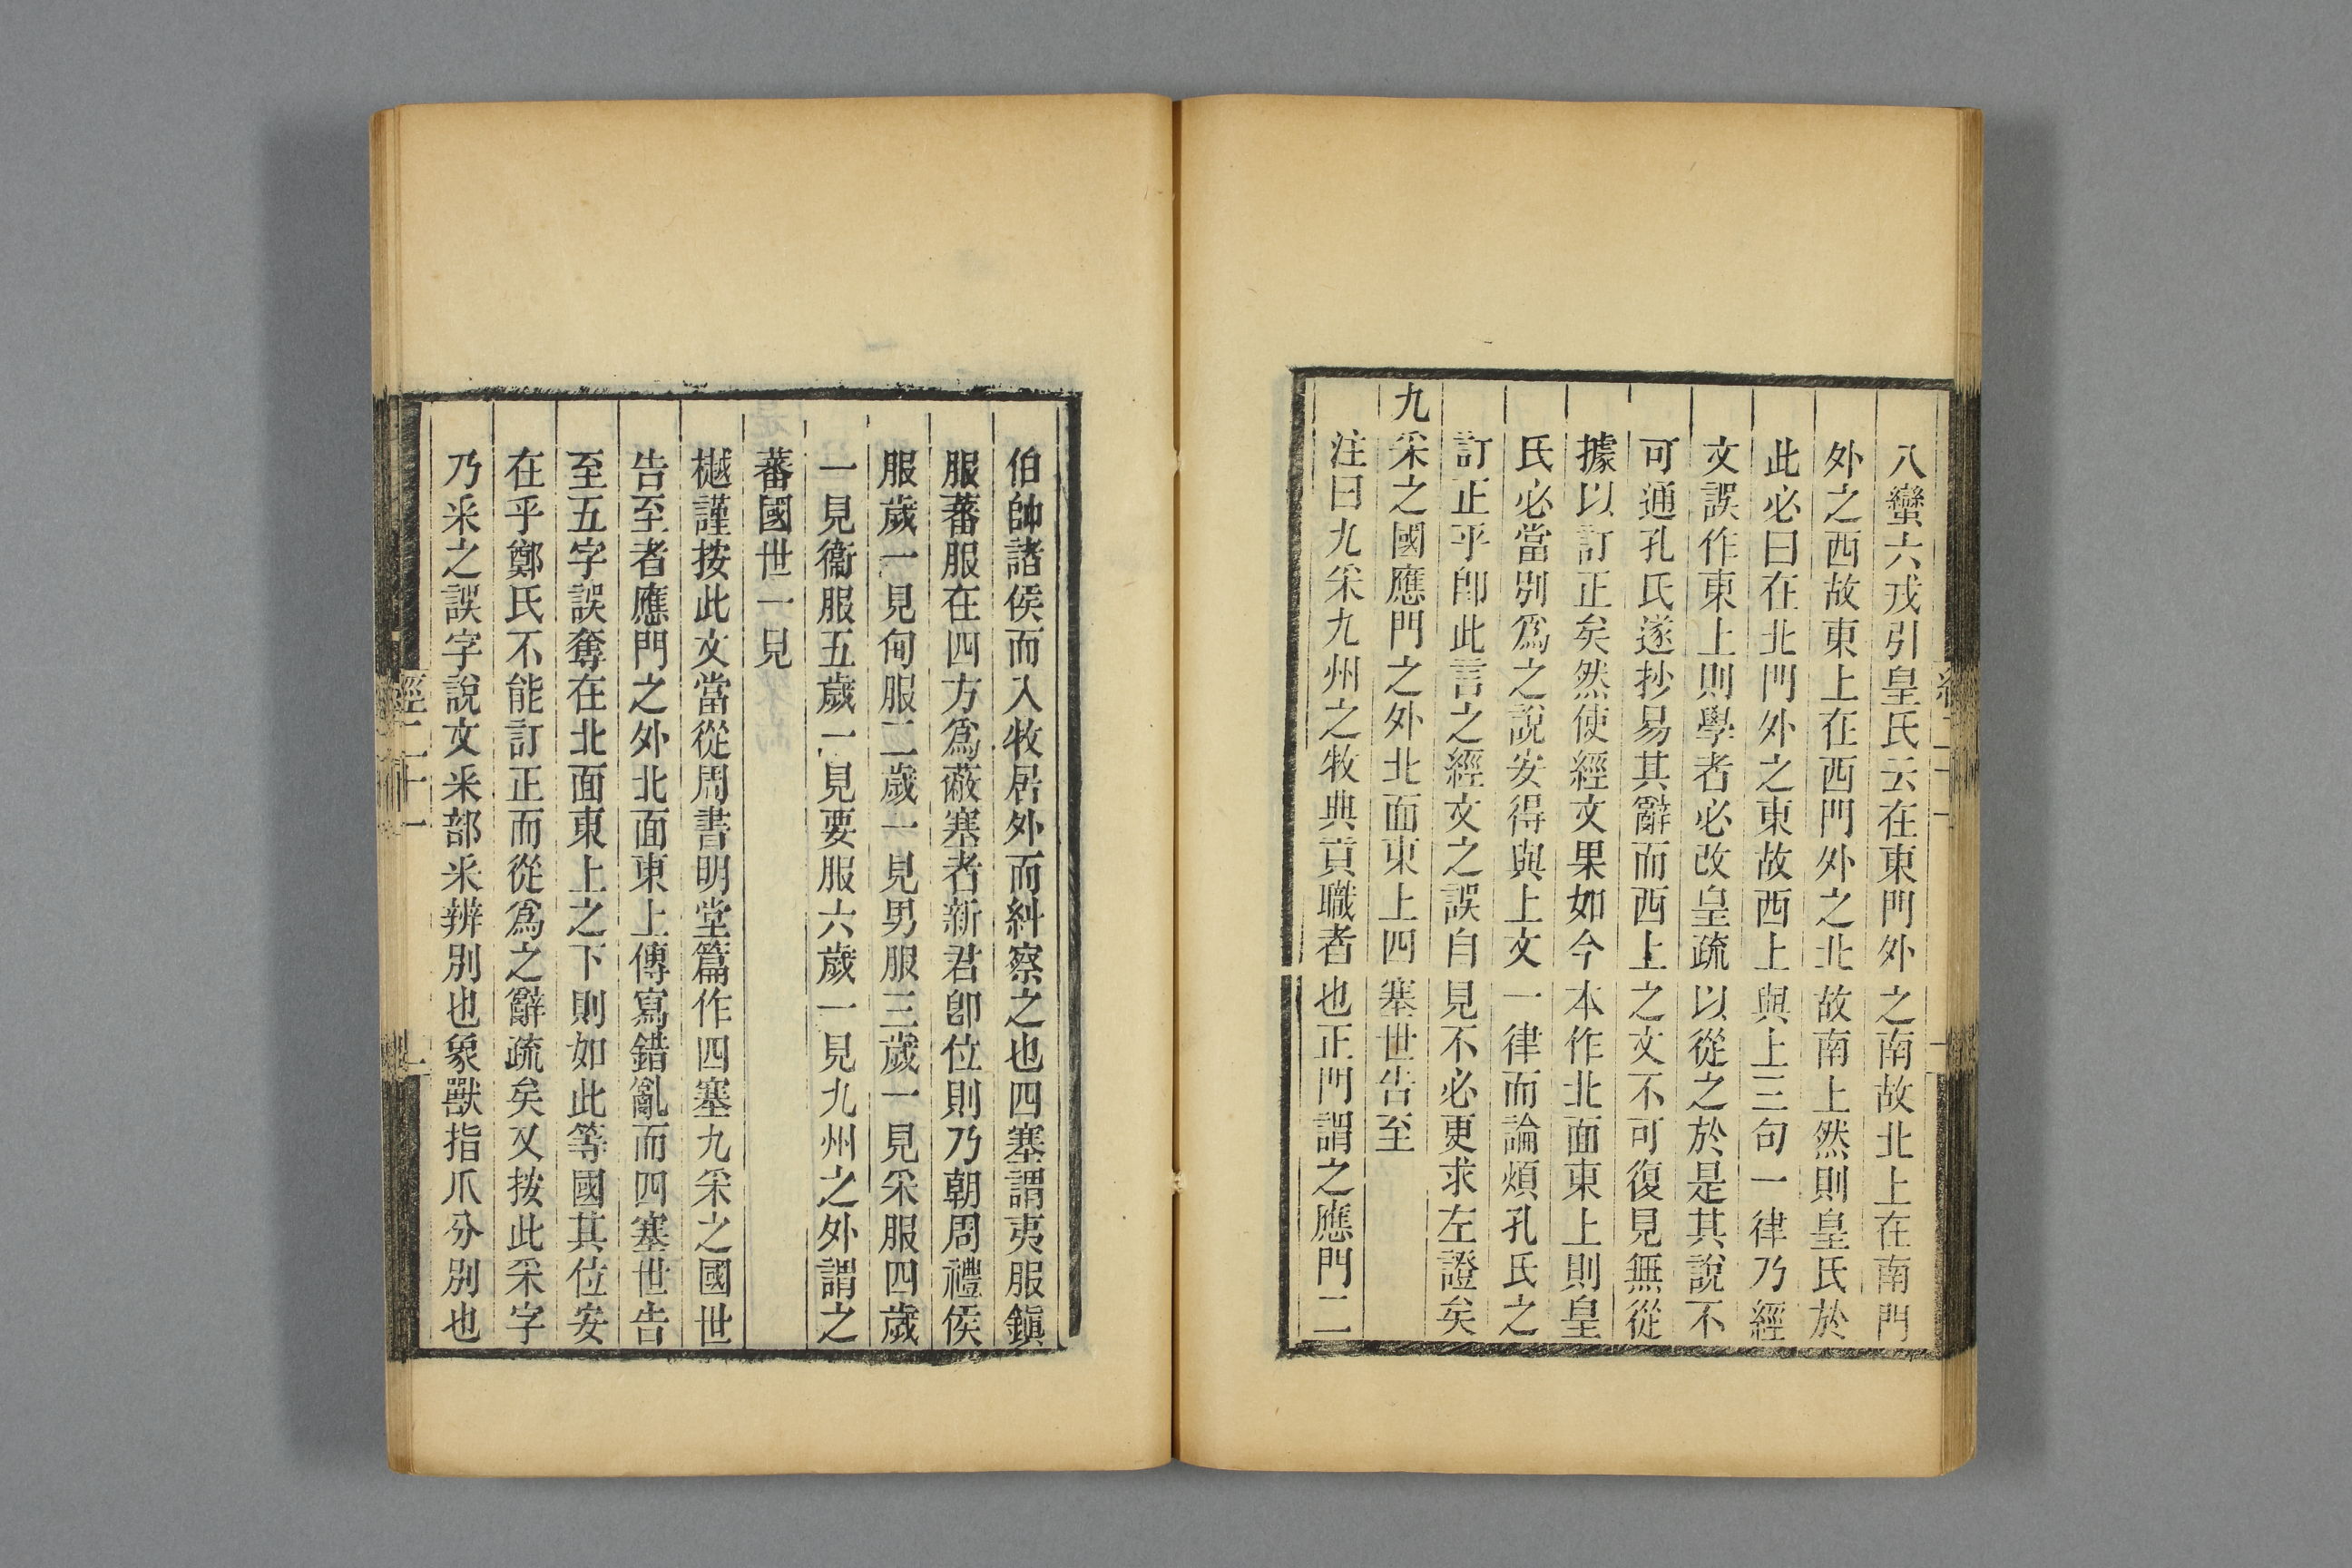 八蠻六戎引皇氏云在東門外之南故北上在南門
外之西故東上在西門外之北故南上然則皇氏於
此必曰在北門外之東故西上與上三句一律乃經
文誤作東上則學者必改皇疏以從之於是其說不
可通孔氏遂抄易其辭而西上之文不可復見無從
據以訂正矣然使經文果如今本作北面東上則皇
氏必當別爲之說安得與上文一律而論煩孔氏之
訂正乎卽此言之經文之誤自見不必更求左證矣
九采之國應門之外北面東上四塞世告至
注曰九采九州之牧典貢職者也正門謂之應門二
伯帥諸侯而入牧居外而糾察之也四塞謂夷服鎭
服蕃服在四方爲蔽塞者新君卽位則乃朝周禮侯
服歲一見甸服二歲一見男服三歲一見采服四歲
一見衞服五歲一見要服六歲一見九州之外謂之
蕃國世一見
樾謹按此文當從周書明堂篇作四塞九采之國世
告至者應門之外北面東上傳寫錯亂而四塞世告
至五字誤奪在北面東上之下則如此等國其位安
在乎鄭氏不能訂正而從爲之辭疏矣又按此采字
乃釆之誤字說文釆部釆辨別也象獸指爪分別也
經二十一